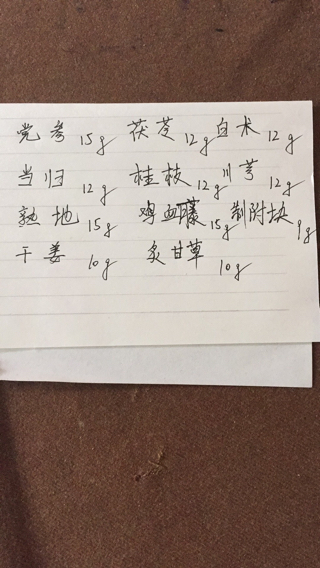 党参 15g 茯苓 12g 白术 12g
当归 12g 桂枝 12g 川芎 12g
熟地 15g 鸡血藤 15g 制附块 9g
干姜 10g 炙甘草 10g